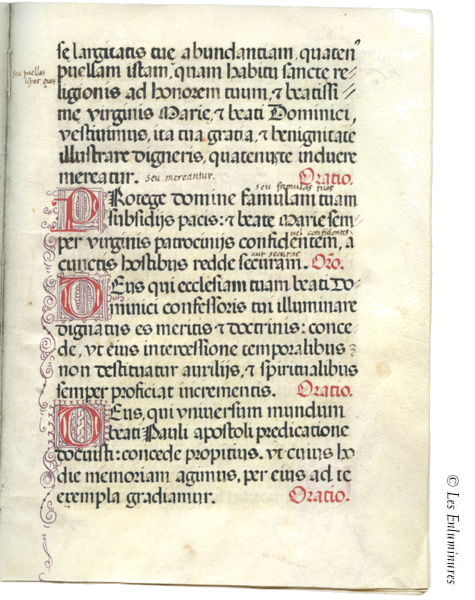 se largitatis tue abundantiam, quaten9
puellam istam, quam habitu sancte re-
seu puellas
istas quas
ligionis ad honorem tuum, & beatissi-
me virginis Marie, & beati Dominici,
vestiuimus, ita tua gratia, & benignitate
illustrare digneris, quatenus te induere
mereatur. seu mereantur. Oratio.
seu famulas tuas
PRotege domine famulam tuam
subsidijs pacis: & beate Marie sem-
uel confidentes
per virginis patrocinijs confidentem, a
aut securas
cunctis hostibus redde securam. Orõ.
DEus qui ecclesiam tuam beati Do-
minici confessoris tui illuminare
dignatus es meritis & doctrinis: conce-
de, vt eius intercessione temporalibus
non destituatur auxilijs, & spiritualibus
semper proficiat incrementis. Oratio.
DEus, qui vniuersum mundum
beati Pauli apostoli predicatione
docuisti: concede propitius. vt cuius ho
die memoriam agimus, per eius ad te
exempla gradiamur. Oratio.
© Les Enluminures